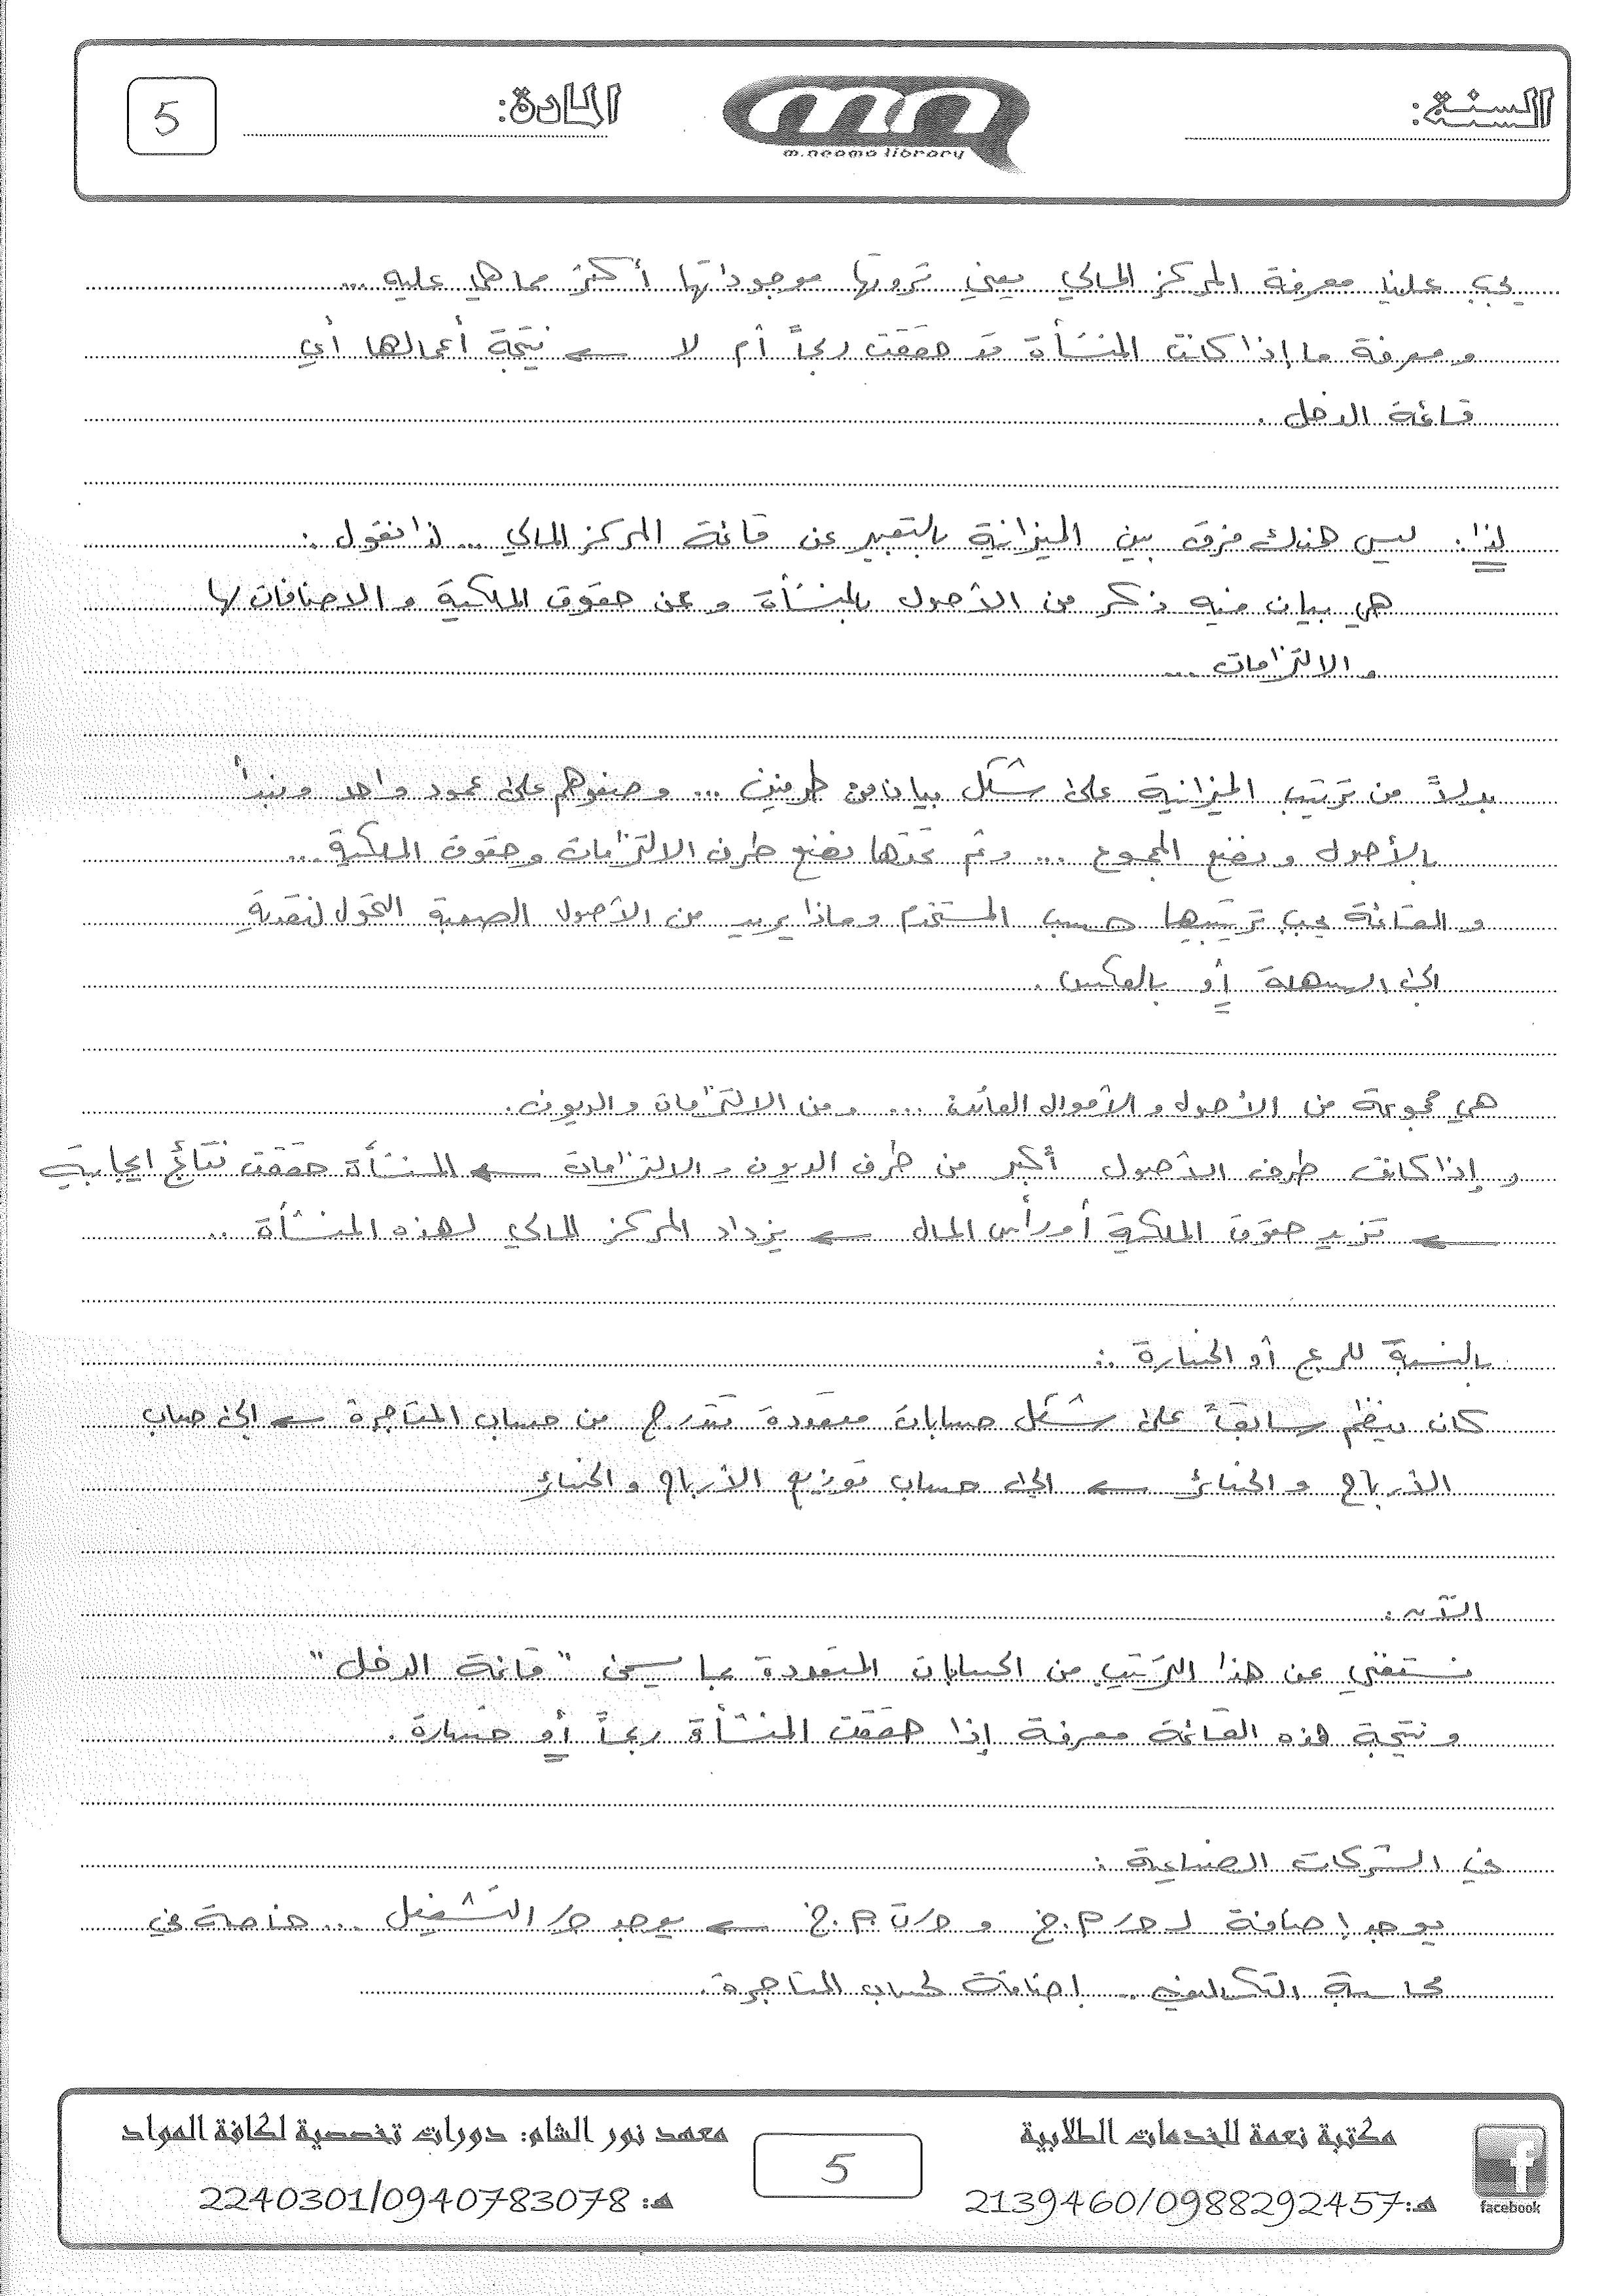 السنة:
m.neama library
المادة:
5
يجب علينا معرفة المركز المالي يعني ثروتها موجوداتها أكثر مما هي عليه ...
و معرفة ما إذا كانت المنشأة قد حققت ربحاً أم لا ← نتيجة أعمالها أي
قائمة الدخل .
لذا: ليس هناك فرق بين الميزانية بالتعبير عن قائمة المركز المالي ... لذا نقول :
هي بيان فيه ذكر من الأصول بالمنشأة و عن حقوق الملكية و الاضافات لها
و الالتزامات ...
بدلاً من ترتيب الميزانية على شكل بيان من طرفين ... وضعوهم على عمود واحد ونبدأ
بالأصول و نضع المجموع ... وثم تحتها نضع طرف الالتزامات وحقوق الملكية ...
و القائمة يجب ترتيبها حسب المستخدم وماذا يريد من الأصول الصعبة التحول لنقدية
الى السهلة أو بالعكس .
هي مجموعة من الأصول و الأموال العائدة ... ومن الالتزامات والديون .
و إذا كانت طرف الأصول أكبر من طرف الديون و الالتزامات ← المنشأة حققت نتائج ايجابية
← تزيد حقوق الملكية أو رأس المال ← يزداد المركز المالي لهذه المنشأة ..
بالنسبة للربح أو الخسارة :.
كان ينظم سابقاً على شكل حسابات متعددة تتدرج من حساب المتاجرة ← الى حساب
الأرباح و الخسائر ← الى حساب توزيع الأرباح والخسائر
الآن :
نستغني عن هذا الترتيب من الحسابات المتعددة بما يسمى " قائمة الدخل "
و نتيجة هذه القائمة معرفة إذا حققت المنشأة ربحاً أو خسارة .
في الشركات الصناعية :
يوجد إضافة لـ حـ/ م.خ و حـ/ت م.خ ← يوجد حـ/ التشغيل ... خاصة في
محاسبة التكاليف .. إضافة لحساب المتاجرة .
مكتبة نعمة للخدمات الطلابية
هـ:2139460/0988292457
facebook
5
معهد نور الشام: دورات تخصصية لكافة المواد
هـ: 2240301/0940783078